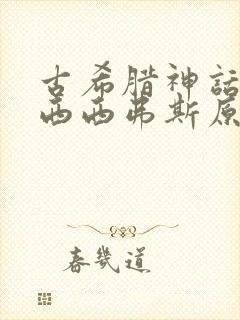 古希腊神话
西西弗斯原
春几道